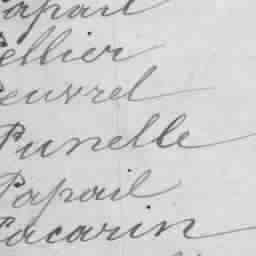 Papail
Pellier
Peuvrel
Punelle
Papail
Pacarin